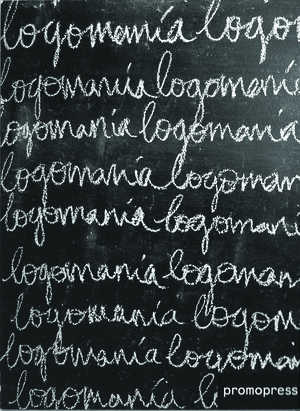 logomanía logo
logomanía logomanía
logomanía logomanía
logomanía logoman
logomanía logomaní
logomanía logoman
logomanía logom
logomanía logoman
logomanía l
promopress